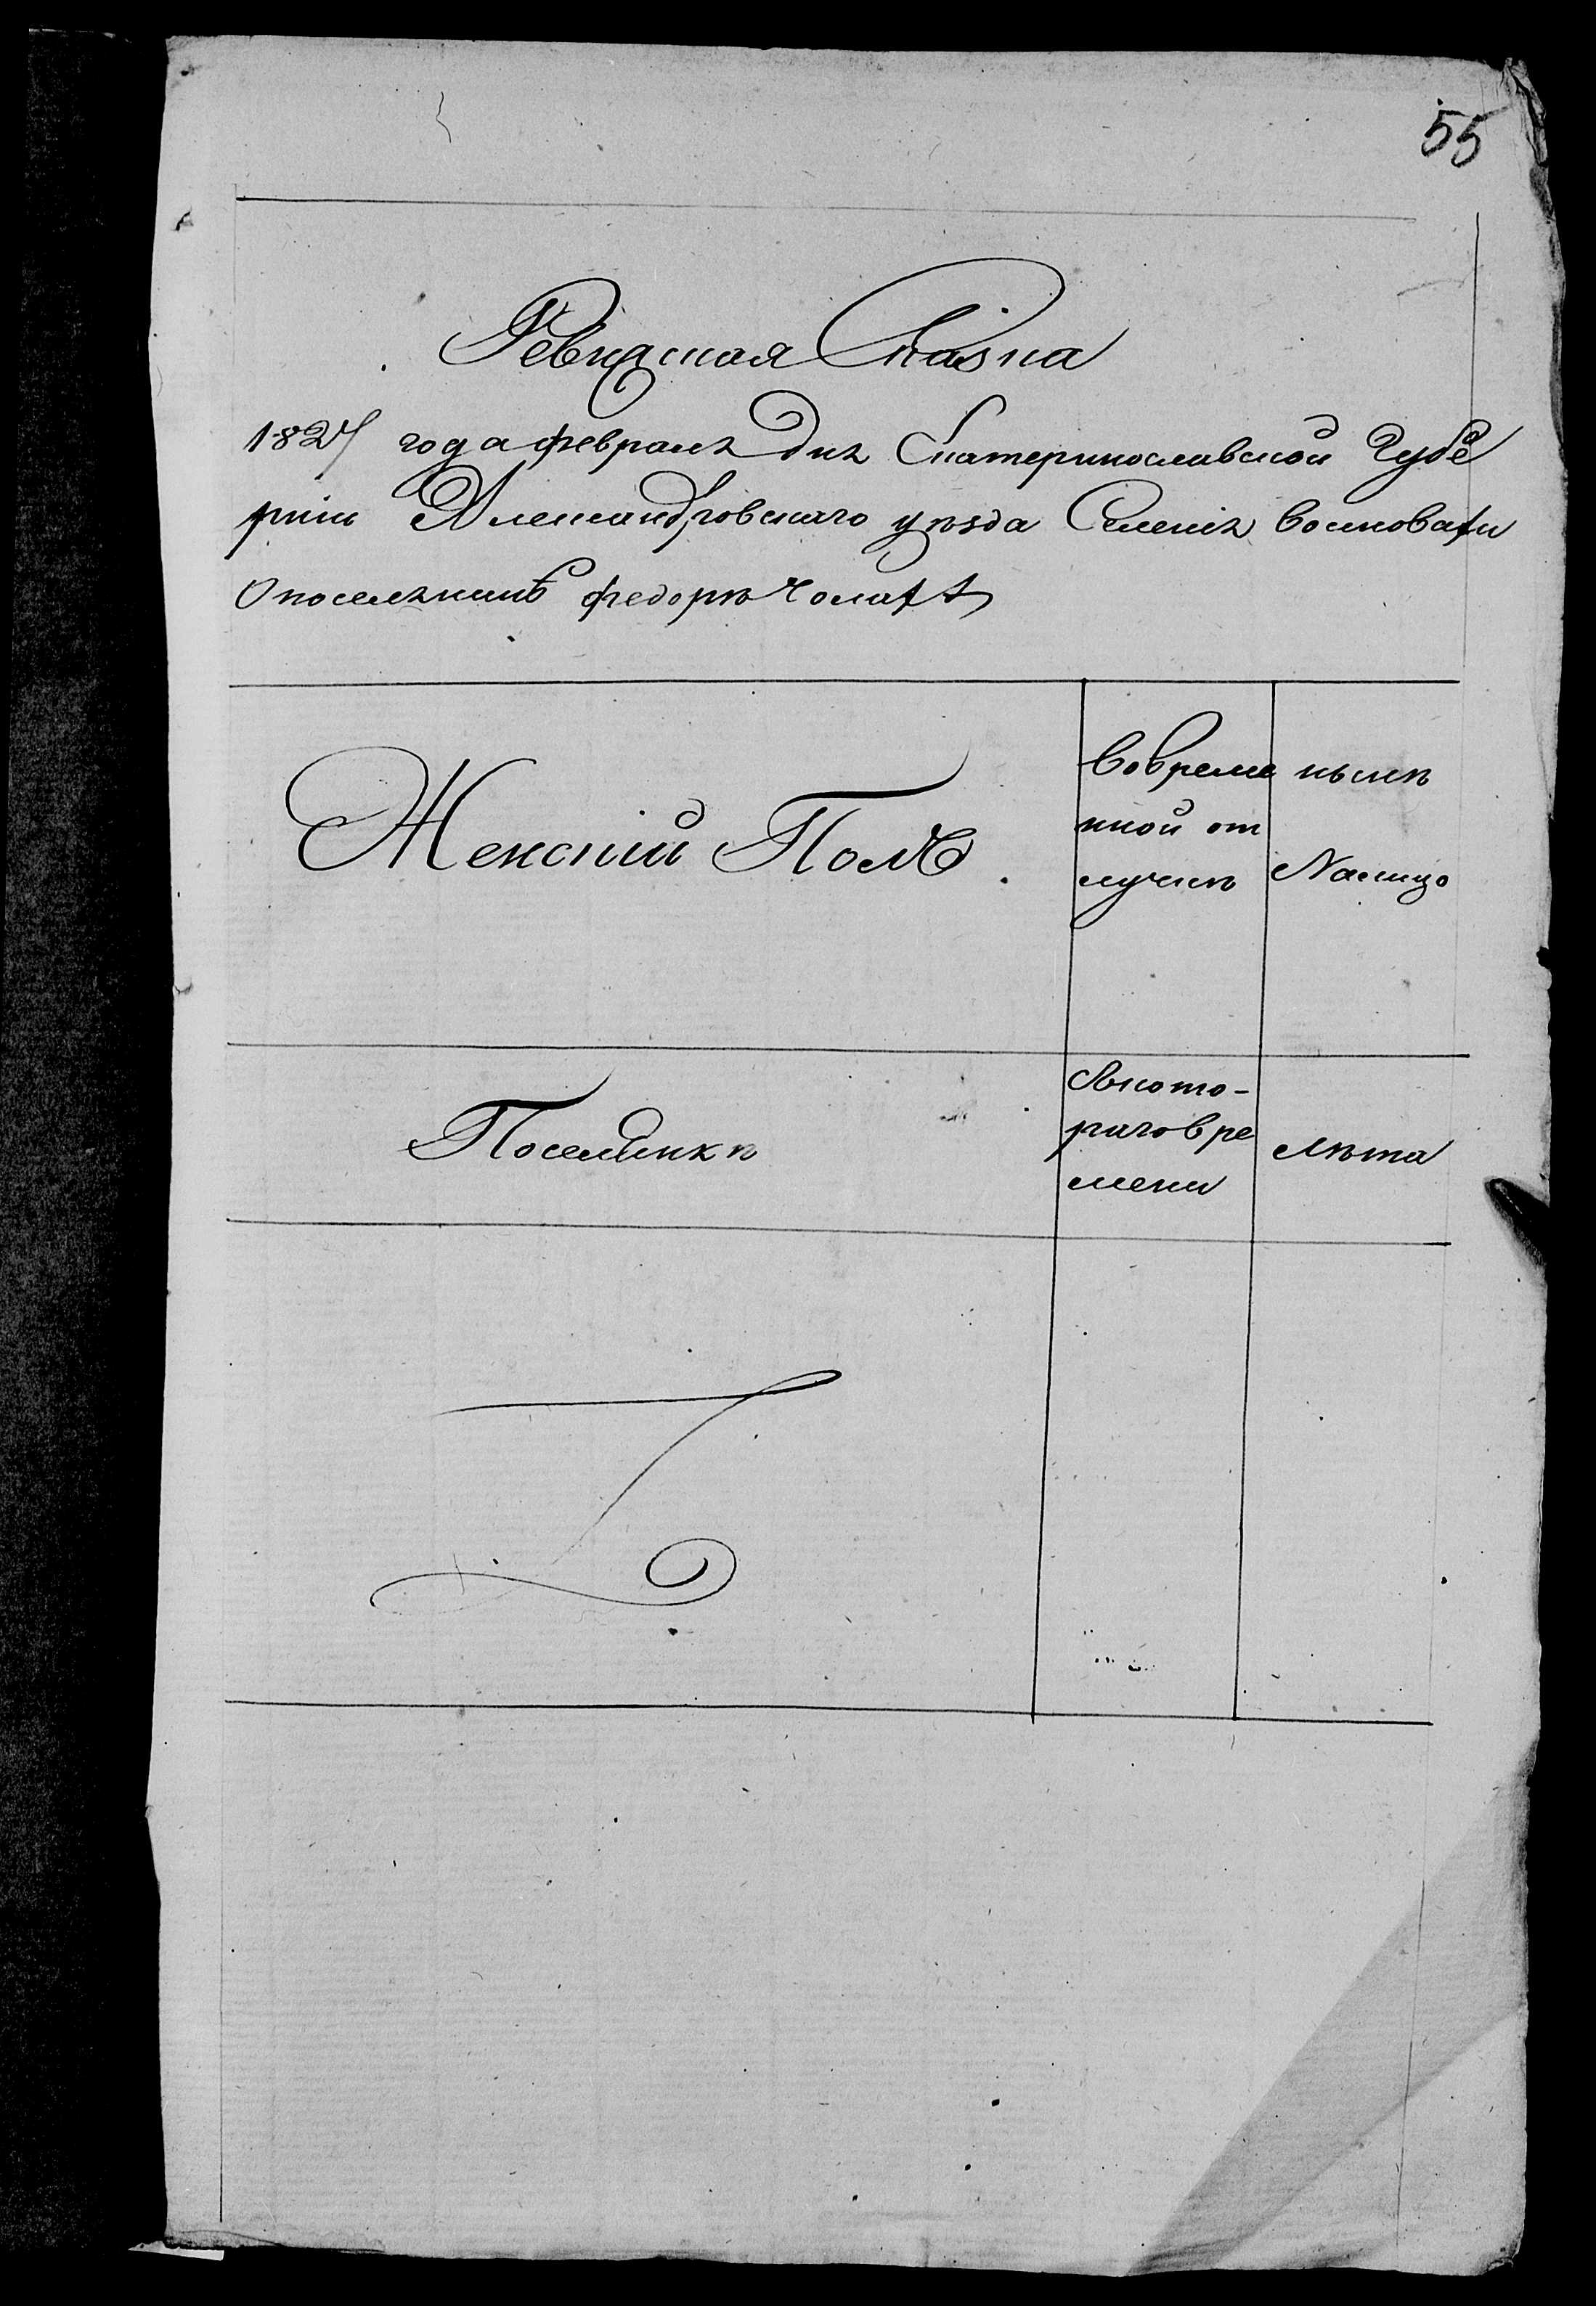 55
Ревизская Сказка
1827 года февраля дня Екатеринославской Губе
рнии Александровскаго уѣзда Селения
О поселянинѣ федорѣ
Женский Полъ
Вовреме
нной от
лучкѣ
нынѣ
Налицо
Поселянкѣ
Ското-
раговре
мени
лѣта